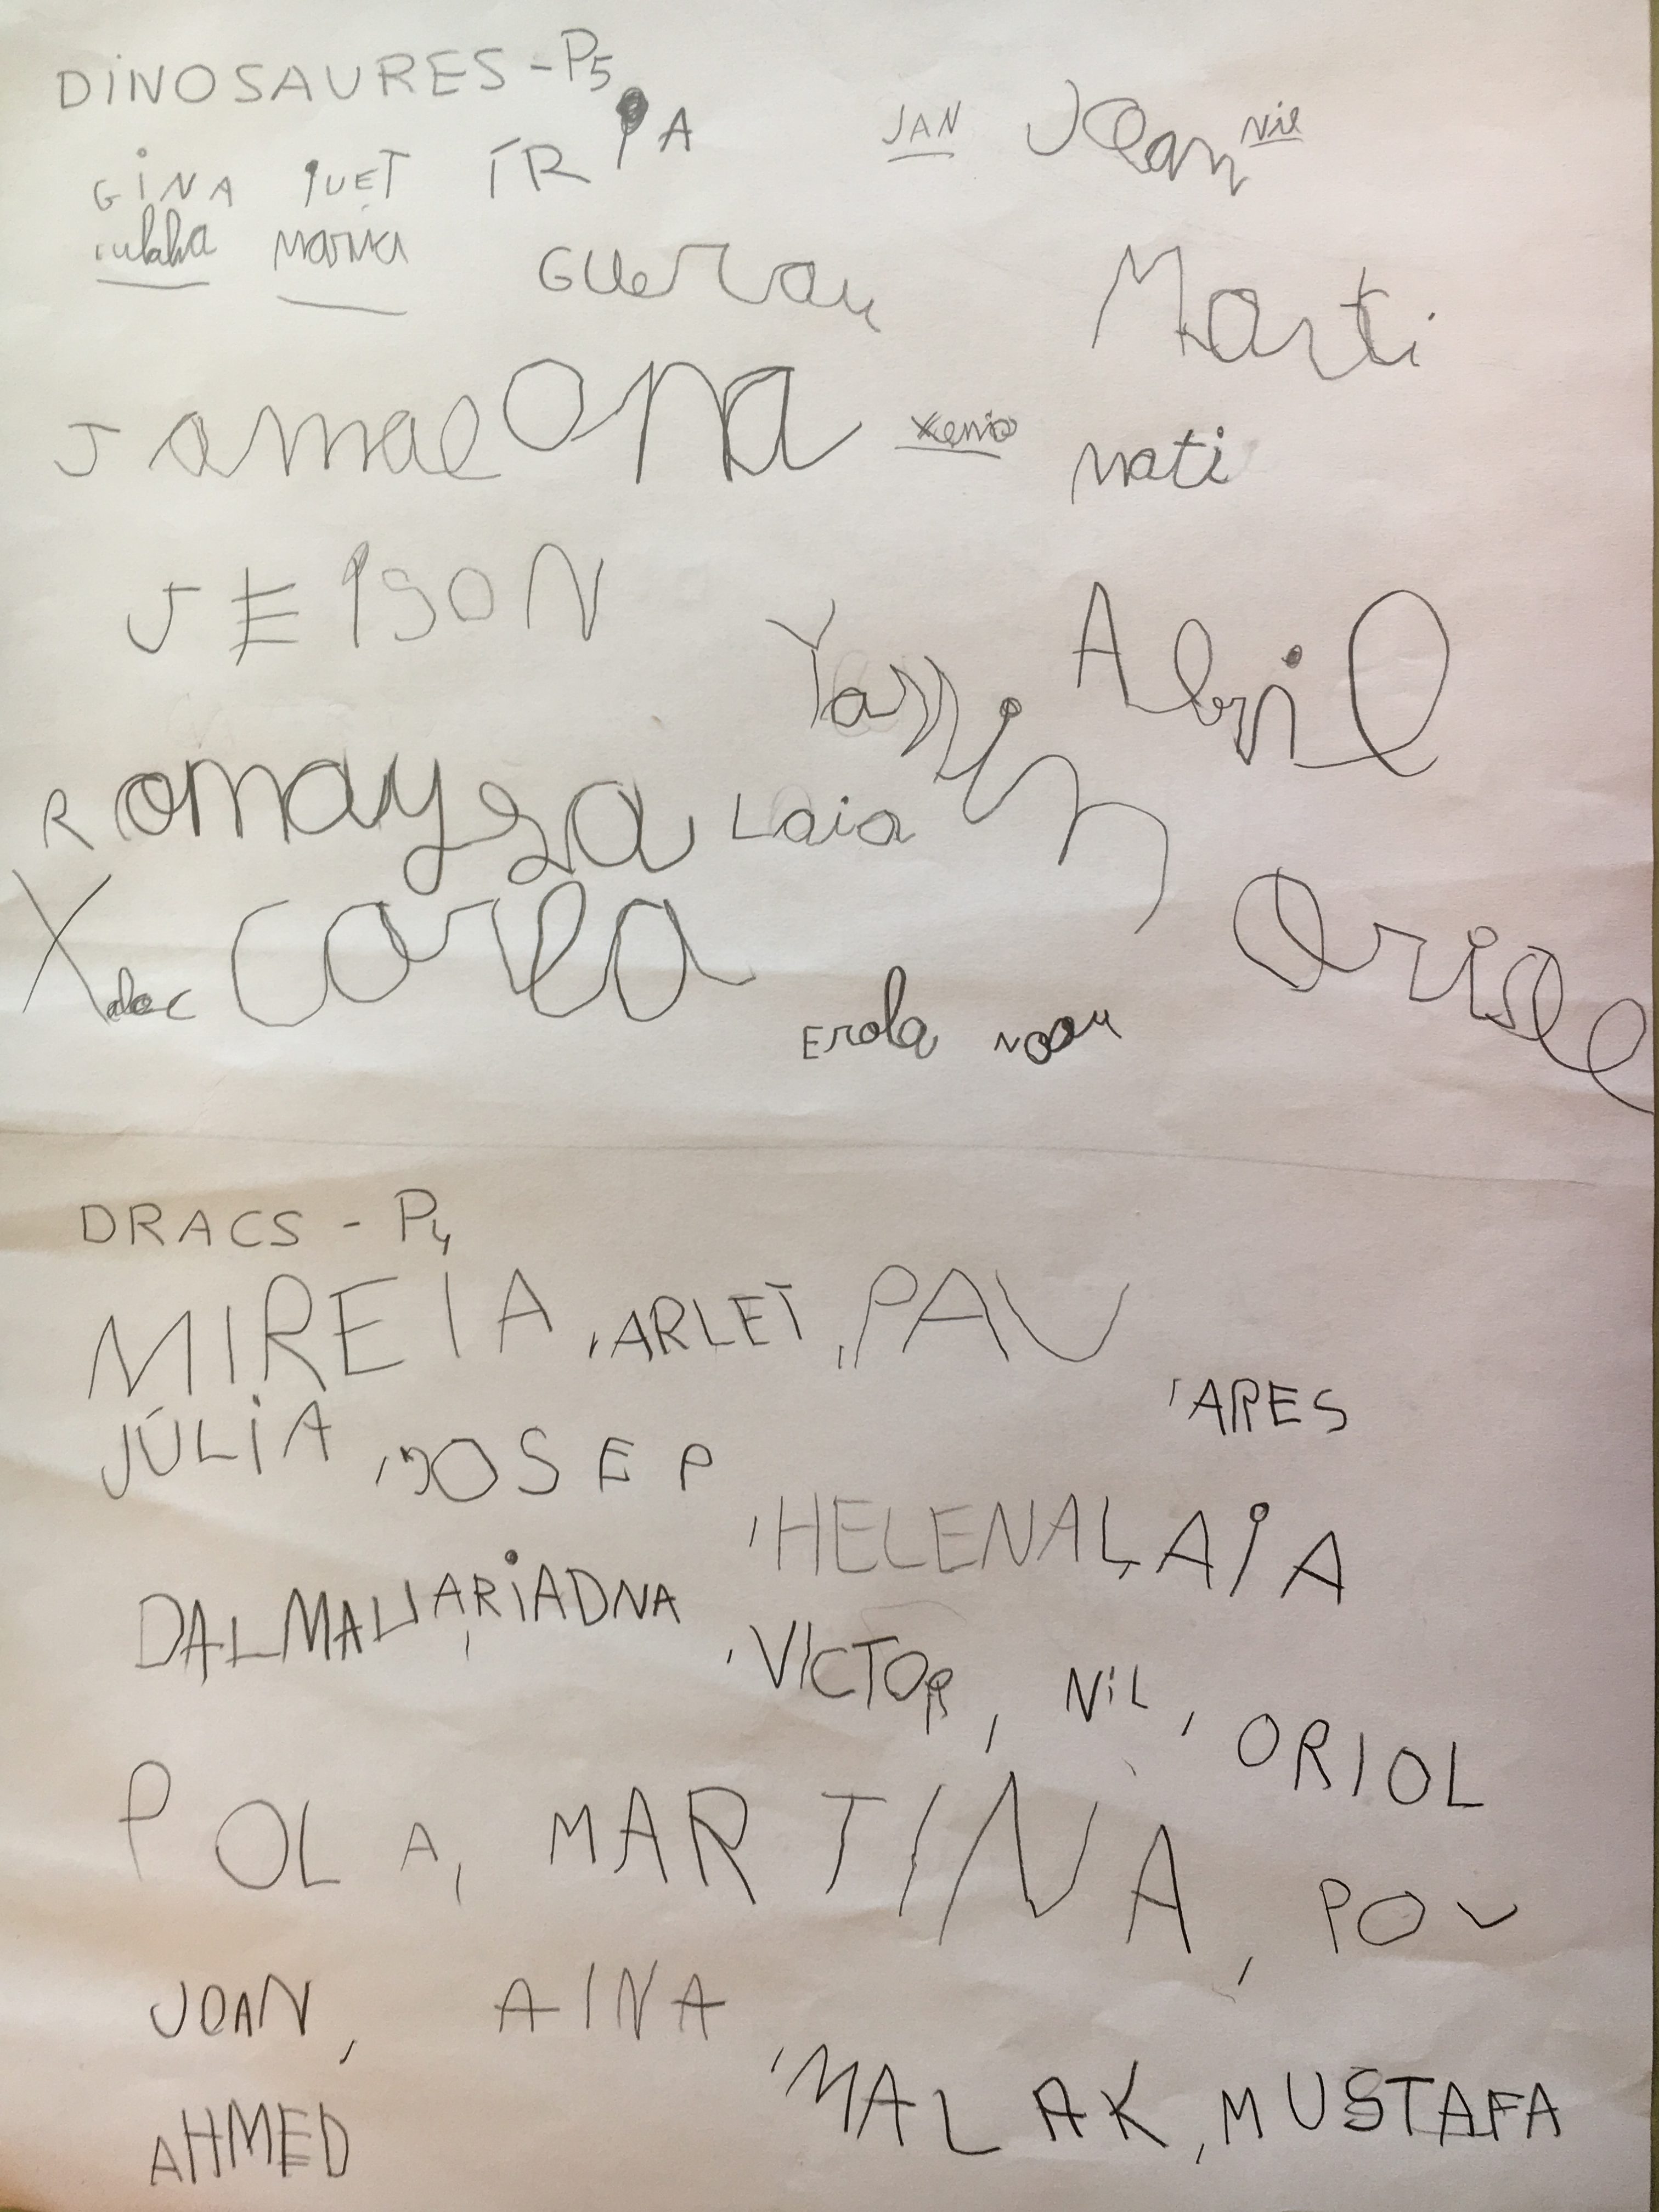 DiNOSAURES - P5
GiNA ÍR A JAN Joan Nil
Maria Guerau Martí
Jamal Ona Xènia Mati
JEISON
Yassin Abril
Romaysa Laia
Carla Oriol
Erola Noau
DRACS - P4
MIREIA, ARLET, PAU
, ARES
JÚLiA, JOSEP
, HELENA, LAIA
DALMAU, ARiADNA
, VICTOR, NiL, ORIOL
POL A, MARTINA, POU
JOAN, AINA
, MALAK, MUSTAFA
AHMED